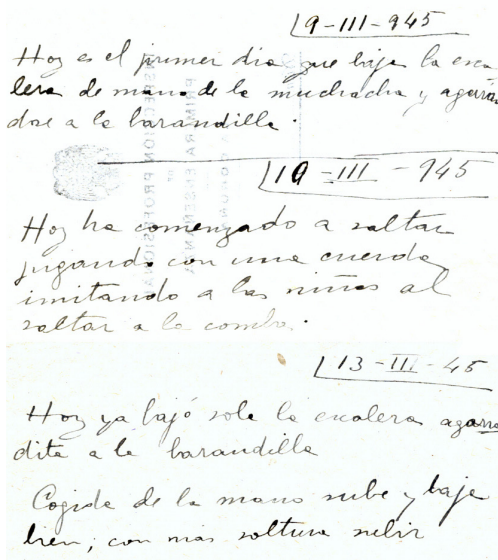 9-III-945
Hoy es el primer dia que baja la esca
lera de mano de la muchacha y agarran
dose a la barandilla.
10-III-945
Hoy ha comenzado a saltar
jugando con una cuerda,
imitando a las niñas al
saltar a la comba.
13-III-45
Hoy ya bajó sola la escalera agarra
dita a la barandilla
Cogida de la mano sube y baja
bien; con mas soltura subir